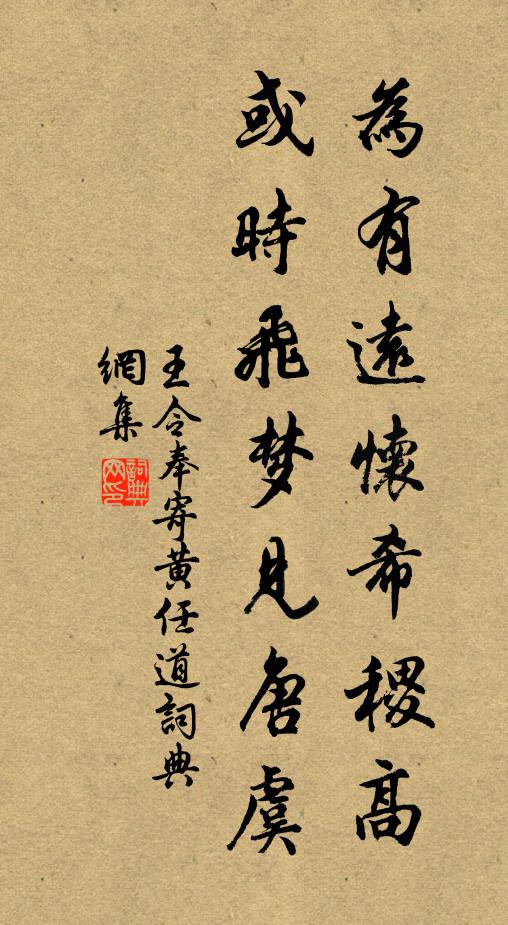 為有遠懷希稷高
或時飛梦見唐虞
王令奉寄黄任道詞典
網集
詞典网印